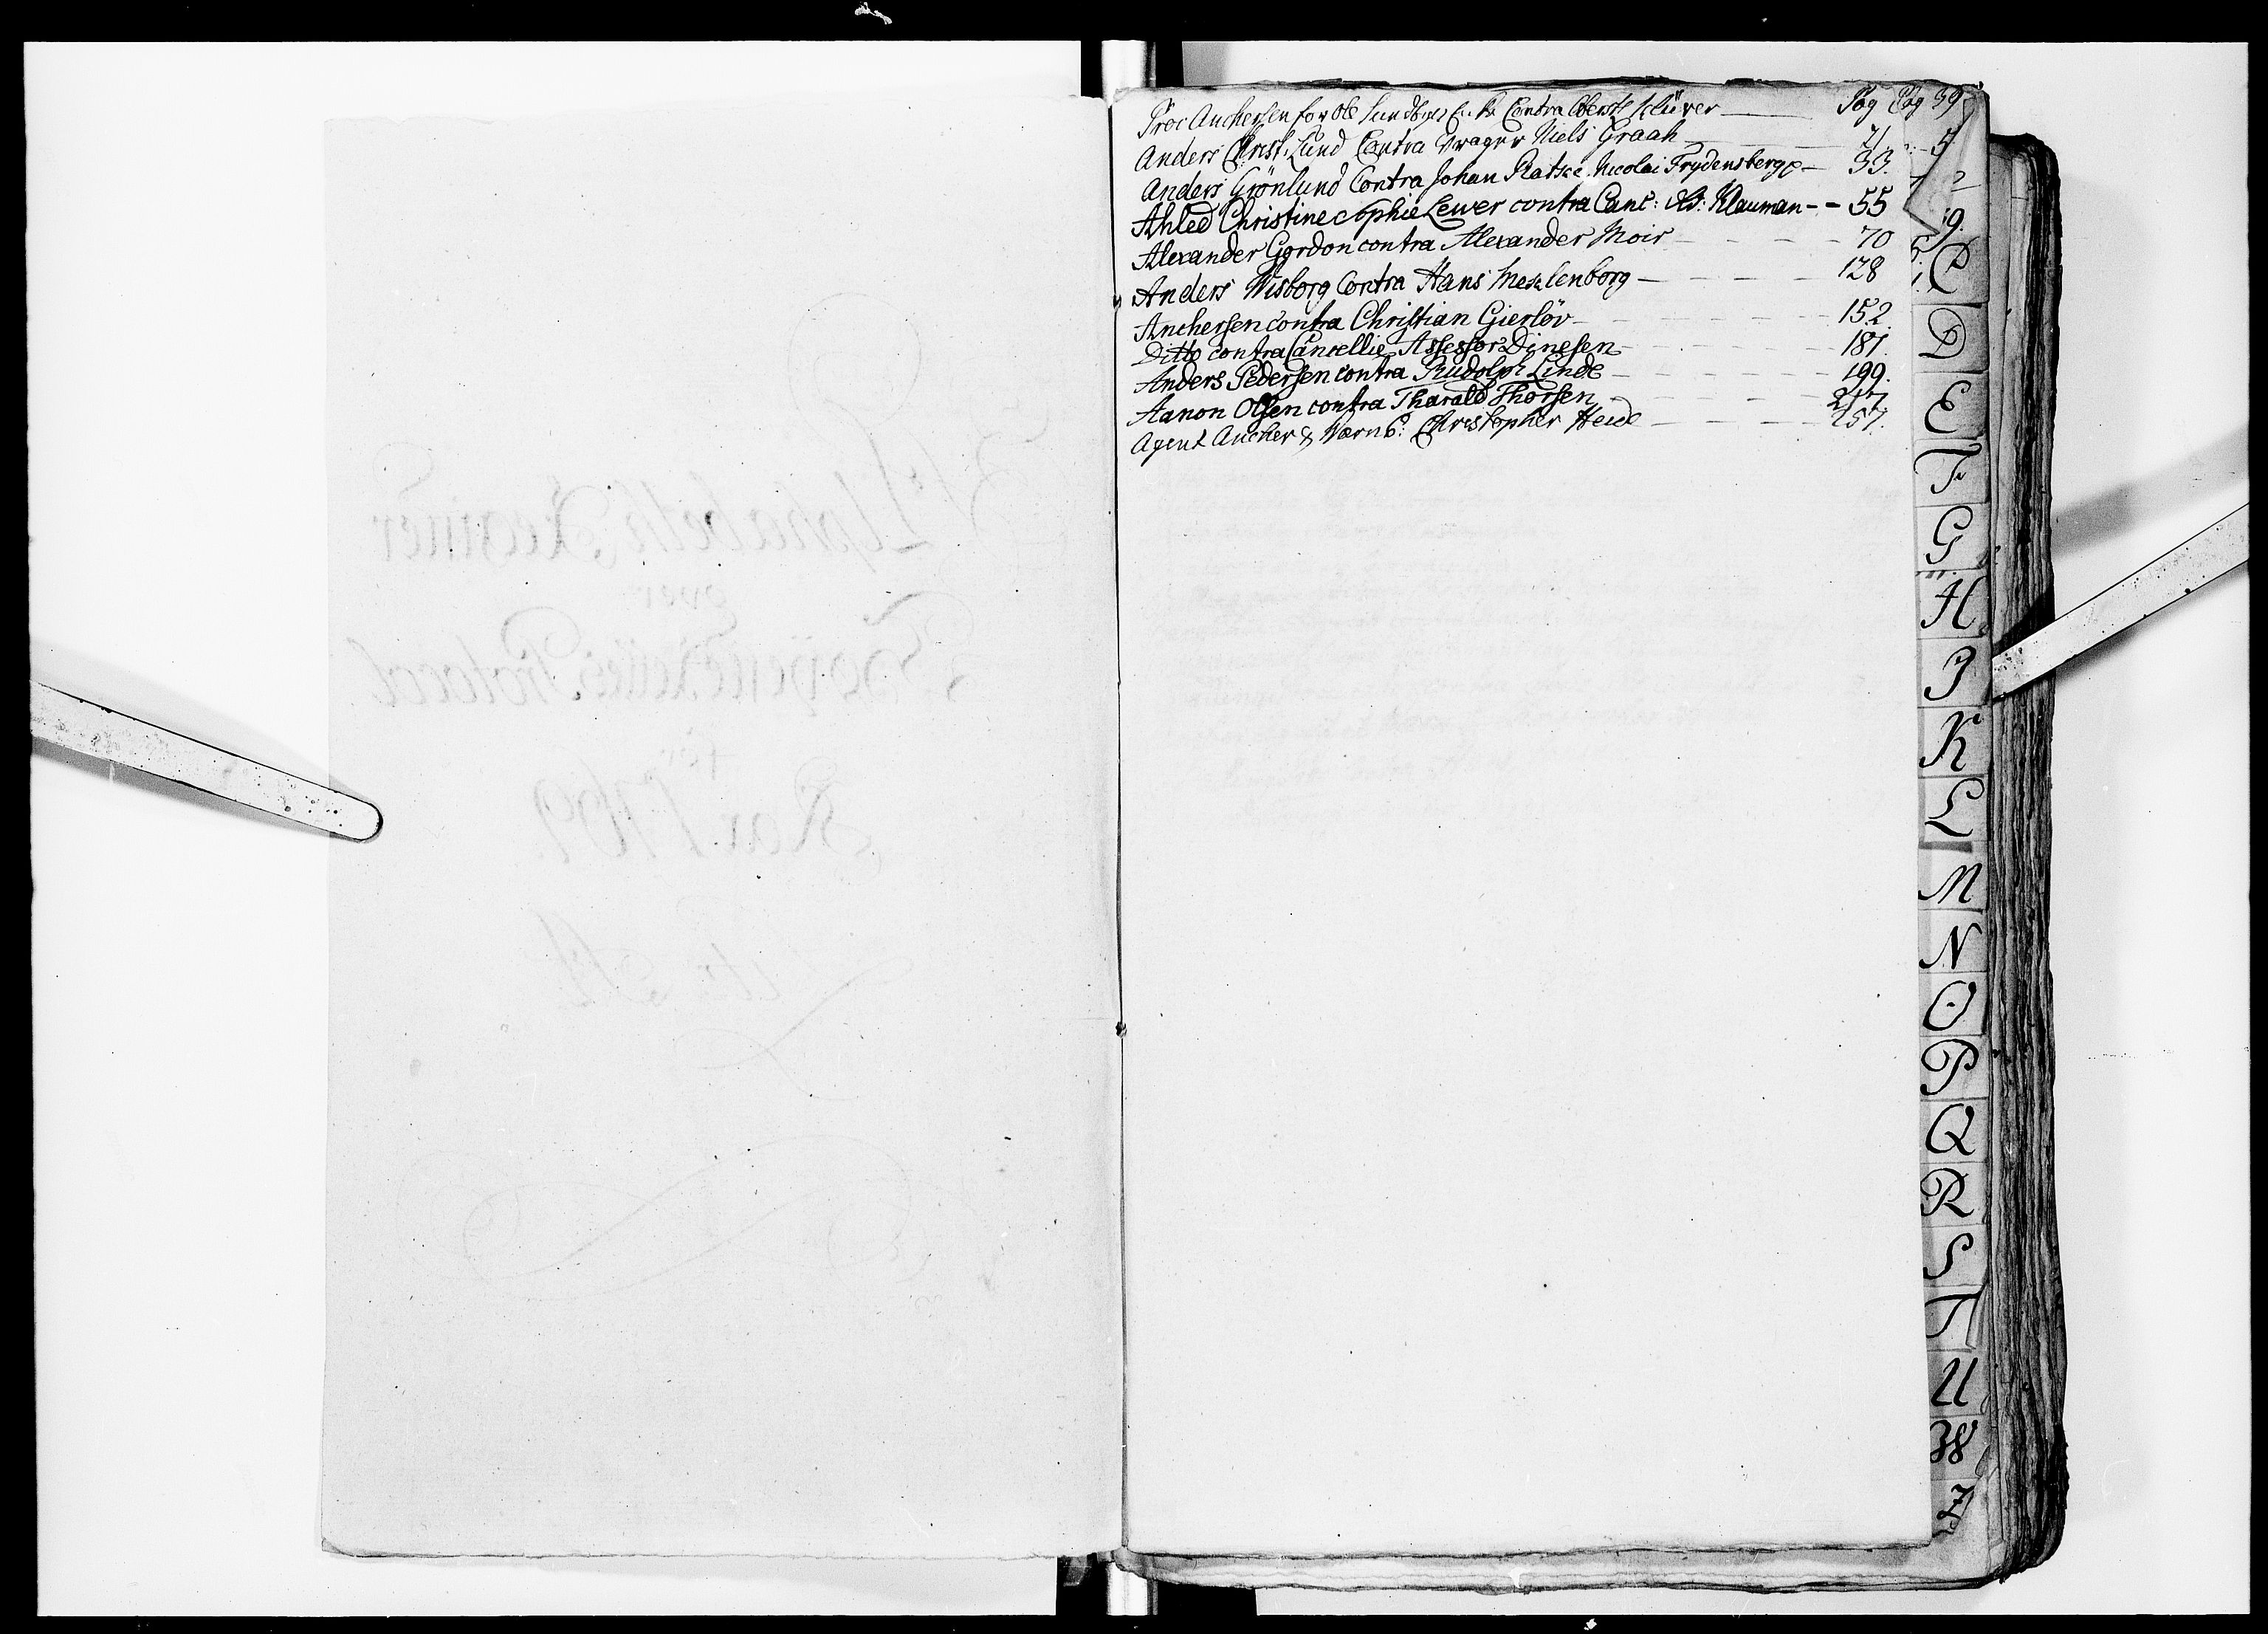 Proc Anchersen for Ole Lundbergs Enke Contra Oberst Klüver Pag Pag 39
Anders Christ. Lund Contra Vrager Niels Graah 71
Anders Grönlund Contra Johan Ratske Nicolai Frydensberg 33.
Ahled Christine Sophie Lewer contra Canc: Klauman 55
Alexander Gordon contra Alexander Moir 70
Anders Wisborg Contra Hans Meklenborg 128
Anchersen contra Christian Gierlöv 152.
Ditto contra Cancellie Assessor Dinesen 181.
Anders Pedersen contra Rudolph Linde 199.
Aanon Olsen contra Tharald Thorsen
Agent Ancher & Wærn C: Christopher Heide 257.
D
E
F
G
H
I
K
L
M
N
O
P
Q
R
S
T
U